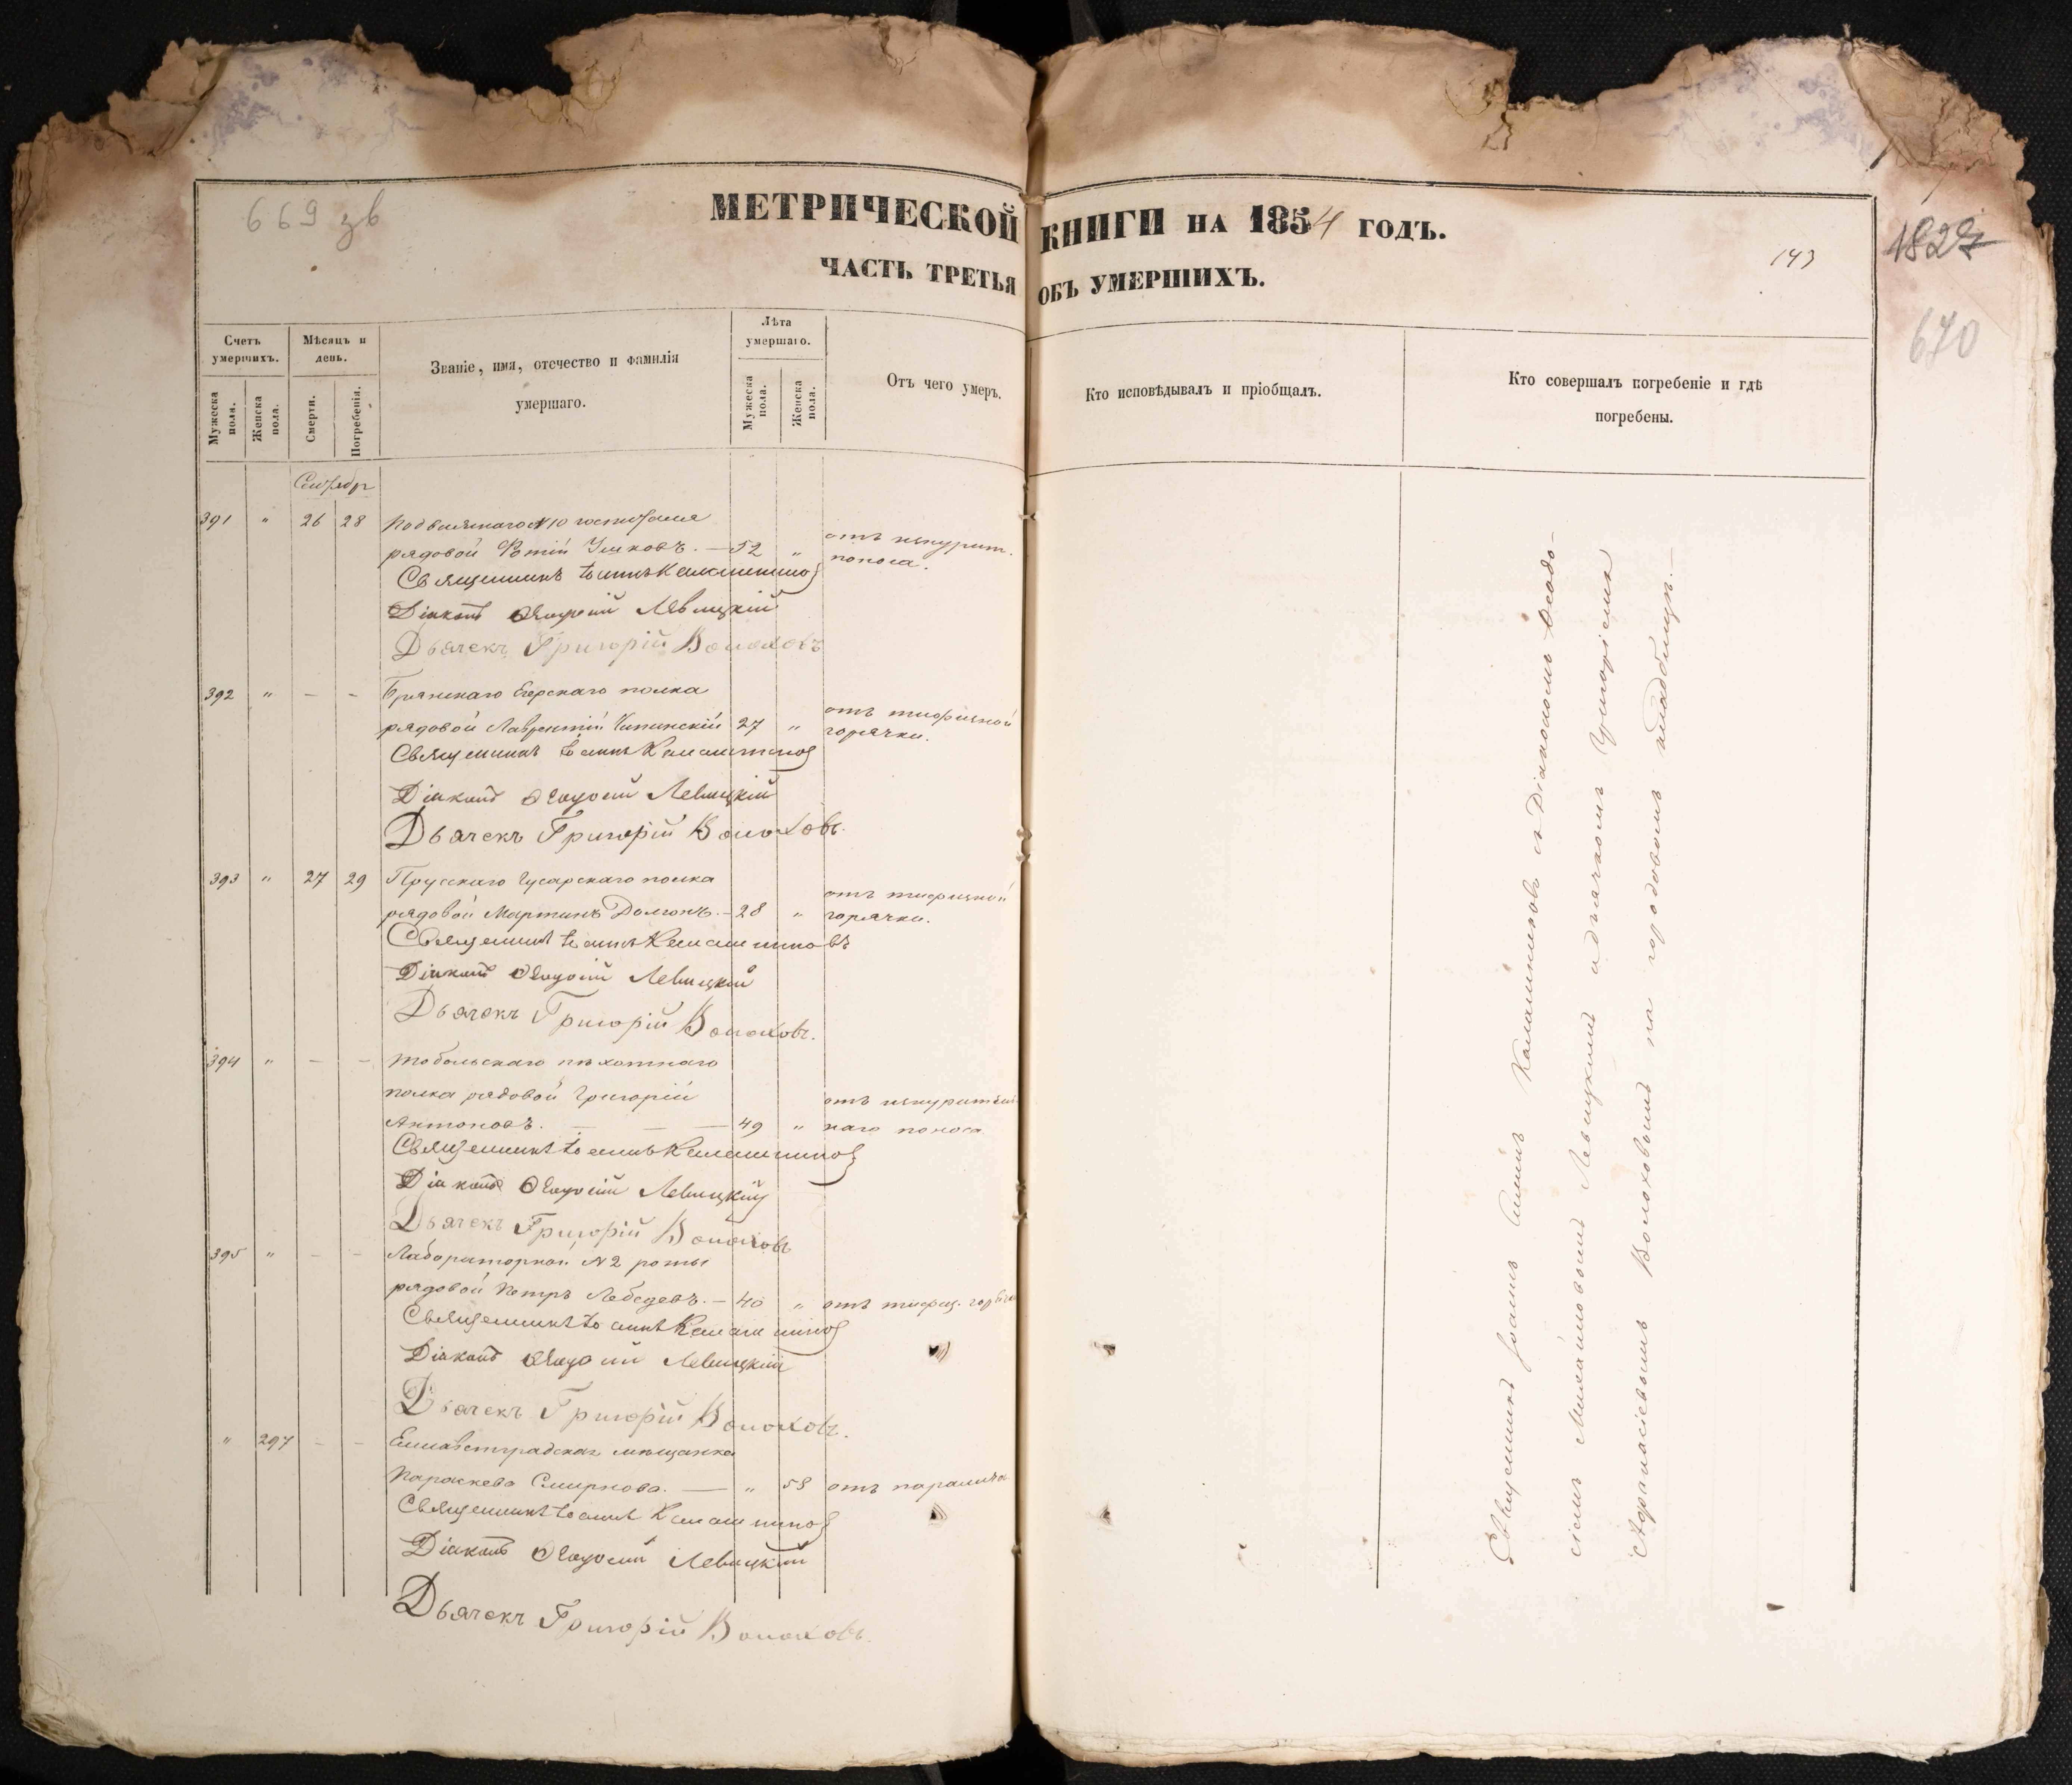 669 зв
МЕТРИЧЕСКОЙ КНИГИ НА 1854 ГОДЪ.
ЧАСТЬ ТРЕТЬЯ ОБЪ УМЕРШИХЪ.
143
1827
670
Счетъ умершихъ.
Мѣсяцъ и день.
Званіе, имя, отечество и фамилія умершаго.
Лѣта умершаго.
Отъ чего умеръ.
Кто исповѣдывалъ и пріобщалъ.
Кто совершалъ погребеніе и гдѣ погребены.
Мужеска пола.
Женска пола.
Смерти.
Погребенія.
Мужеска пола.
Женска пола.
391 " 26 28 Подвижнаго N10 госпиталя
рядовой Фотій Ушковъ. — 52 " отъ изнурит. поноса.
Священникъ Іоаннъ Калашниковъ
Діаконъ Ѳеодосій Левицкій
Дьячекъ Григорій Волоховъ
392 " — — Брянскаго Егерскаго полка
рядовой Лаврентій 27 " отъ тифозной горячки.
Священникъ Іоаннъ Калашниковъ
Діаконъ Ѳеодосій Левицкій
Дьячекъ Григорій Волоховъ.
393 " 27 29 Прусскаго Гусарскаго полка
рядовой Мартинъ — 28 " отъ тифозной горячки.
Священникъ Іоаннъ Калашниковъ
Діаконъ Ѳеодосій Левицкій
Дьячекъ Григорій Волоховъ.
394 " — — Тобольскаго пѣхотнаго
полка рядовой Григорій
Антоновъ. — — — 49 " отъ изнурительнаго поноса
Священникъ Іоаннъ Калашниковъ
Діаконъ Ѳеодосій Левицкій
Дьячекъ Григорій Волоховъ
395 " — — Лабораторной N2 роты
рядовой Петръ Лебедевъ. — 40 " отъ тифоз. горячки
Священникъ Іоаннъ Калашниковъ
Діаконъ Ѳеодосій Левицкій
Дьячекъ Григорій Волоховъ.
" 297 — — Елисаветградская мѣщанка
Параскева Смирнова. — " 58 отъ паралича
Священникъ Іоаннъ Калашниковъ
Діаконъ Ѳеодосій Левицкій
Дьячекъ Григорій Волоховъ.
Священникъ Іоаннъ Калашниковъ съ Діакономъ Ѳеодо-
сіемъ Левицкимъ и дьячкомъ Григоріемъ
Волоховымъ на городовомъ кладбищѣ. —